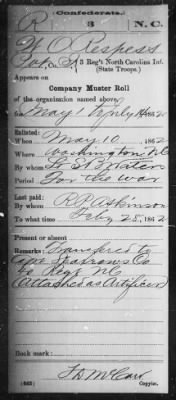 Confederate.
R 3 N.C.
W O Respess
Co. , 3 Reg't North Carolina Inf.
(State Troops.)
Appears on
Company Muster Roll
of the organization named above,
for May 1 to July 1, 1862
Enlisted:
When May 10, 1862
Where Washington NC
By whom
Period For the war
Last paid:
By whom R P Atkinson
To what time Feby 28, 1862
Present or absent
Remarks: Transfered to
Co
Regt NC
(Attached as Artificer)
Book mark:
Copyist.